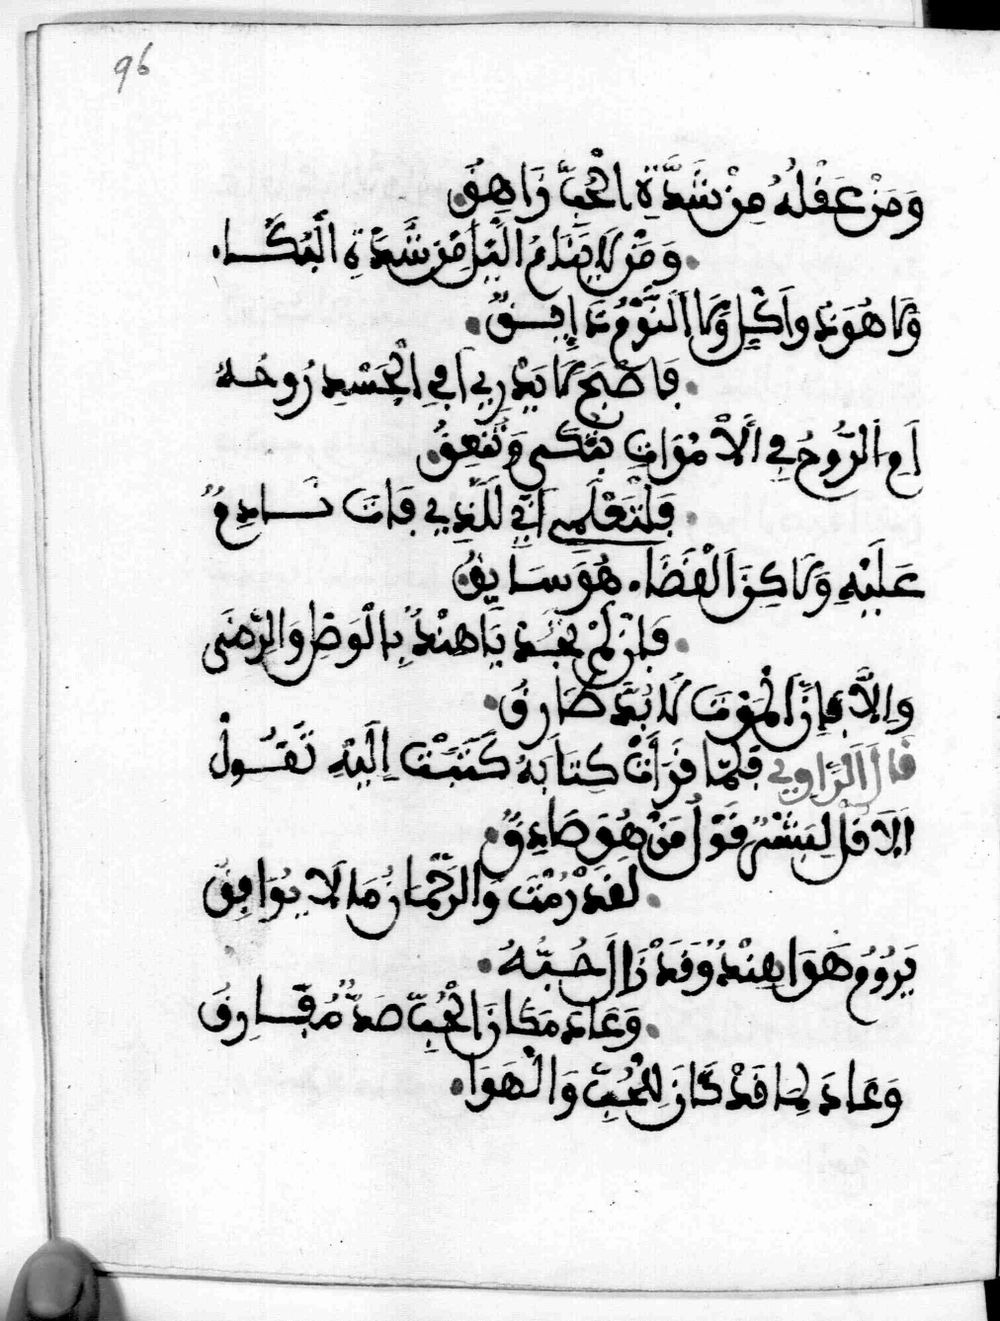 96
وَمَنْ عَفْلُهُ مِنْ شَدَّةِ الْحُبِّ زَاهِقُ
وَمَنْ لَا يَنَامُ الَّيْلَ مِنْ شَدَّةِ الْبُكَاء
وَمَا هُوَ ذُو أَكْلٍ وَمَا النَّوْمُ ذَايِقُ
فَاصْبَحَ مَا يَدْرِي أَفِي الْجَسَدِ رُوحُهُ
أَمِ الرُّوحُ فِي الْأَمْوَاتِ تَبْكِي وَتَنْعِقُ
فَلْتَعْلَمِي أَنِّي لِلَّذِي فَاتَ نَادِمُ
عَلَيْهِ وَلَاكِنَّ الْقَضَاء هُوَ سَابِقُ
فَإِنْ لَمْ تَجُدْ يَا هِنْدُ بِالْوَصْلِ وَالرِّضَى
وَإِلَّا فَإِنَّ الْمَوْتَ لَا بُدَّ طَارِقُ
قَالَ الرَّاوِي فَلَمَّا قَرَأَتْ كِتَابَهُ كَتَبَتْ إِلَيْهِ تَقُولُ
أَلَا قُلْ لِبِشْرٍ قَوْلُ مَنْ هُوَ صَادِقُ
لَقَدْ رُمْتَ وَالرَّحْمَانُ مَا لَا يُوَافِقُ
يَرُومُ هَوَا هِنْدُ وَقَدْ زَالَ حُبُّهُ
وَعَادَ مَكَانَ الْحُبِّ صَدٌّ مُفَارِقُ
وَعَادَ لِمَا قَدْ كَانَ لِلْحُبِّ وَالْهَوَا